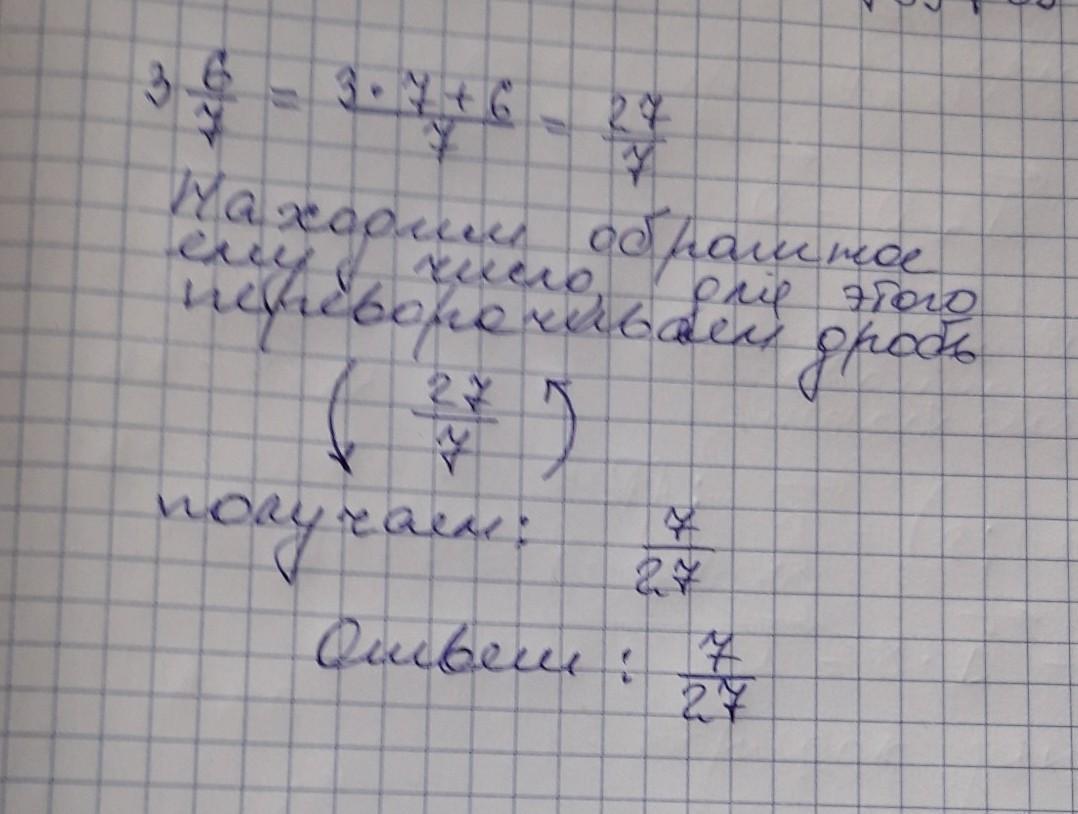 3 6/7 = 3·7+6/7 = 27/7
Находим обратное
ему число, для этого
переворачиваем дробь
27/7
получаем: 7/27
Ответ: 7/27